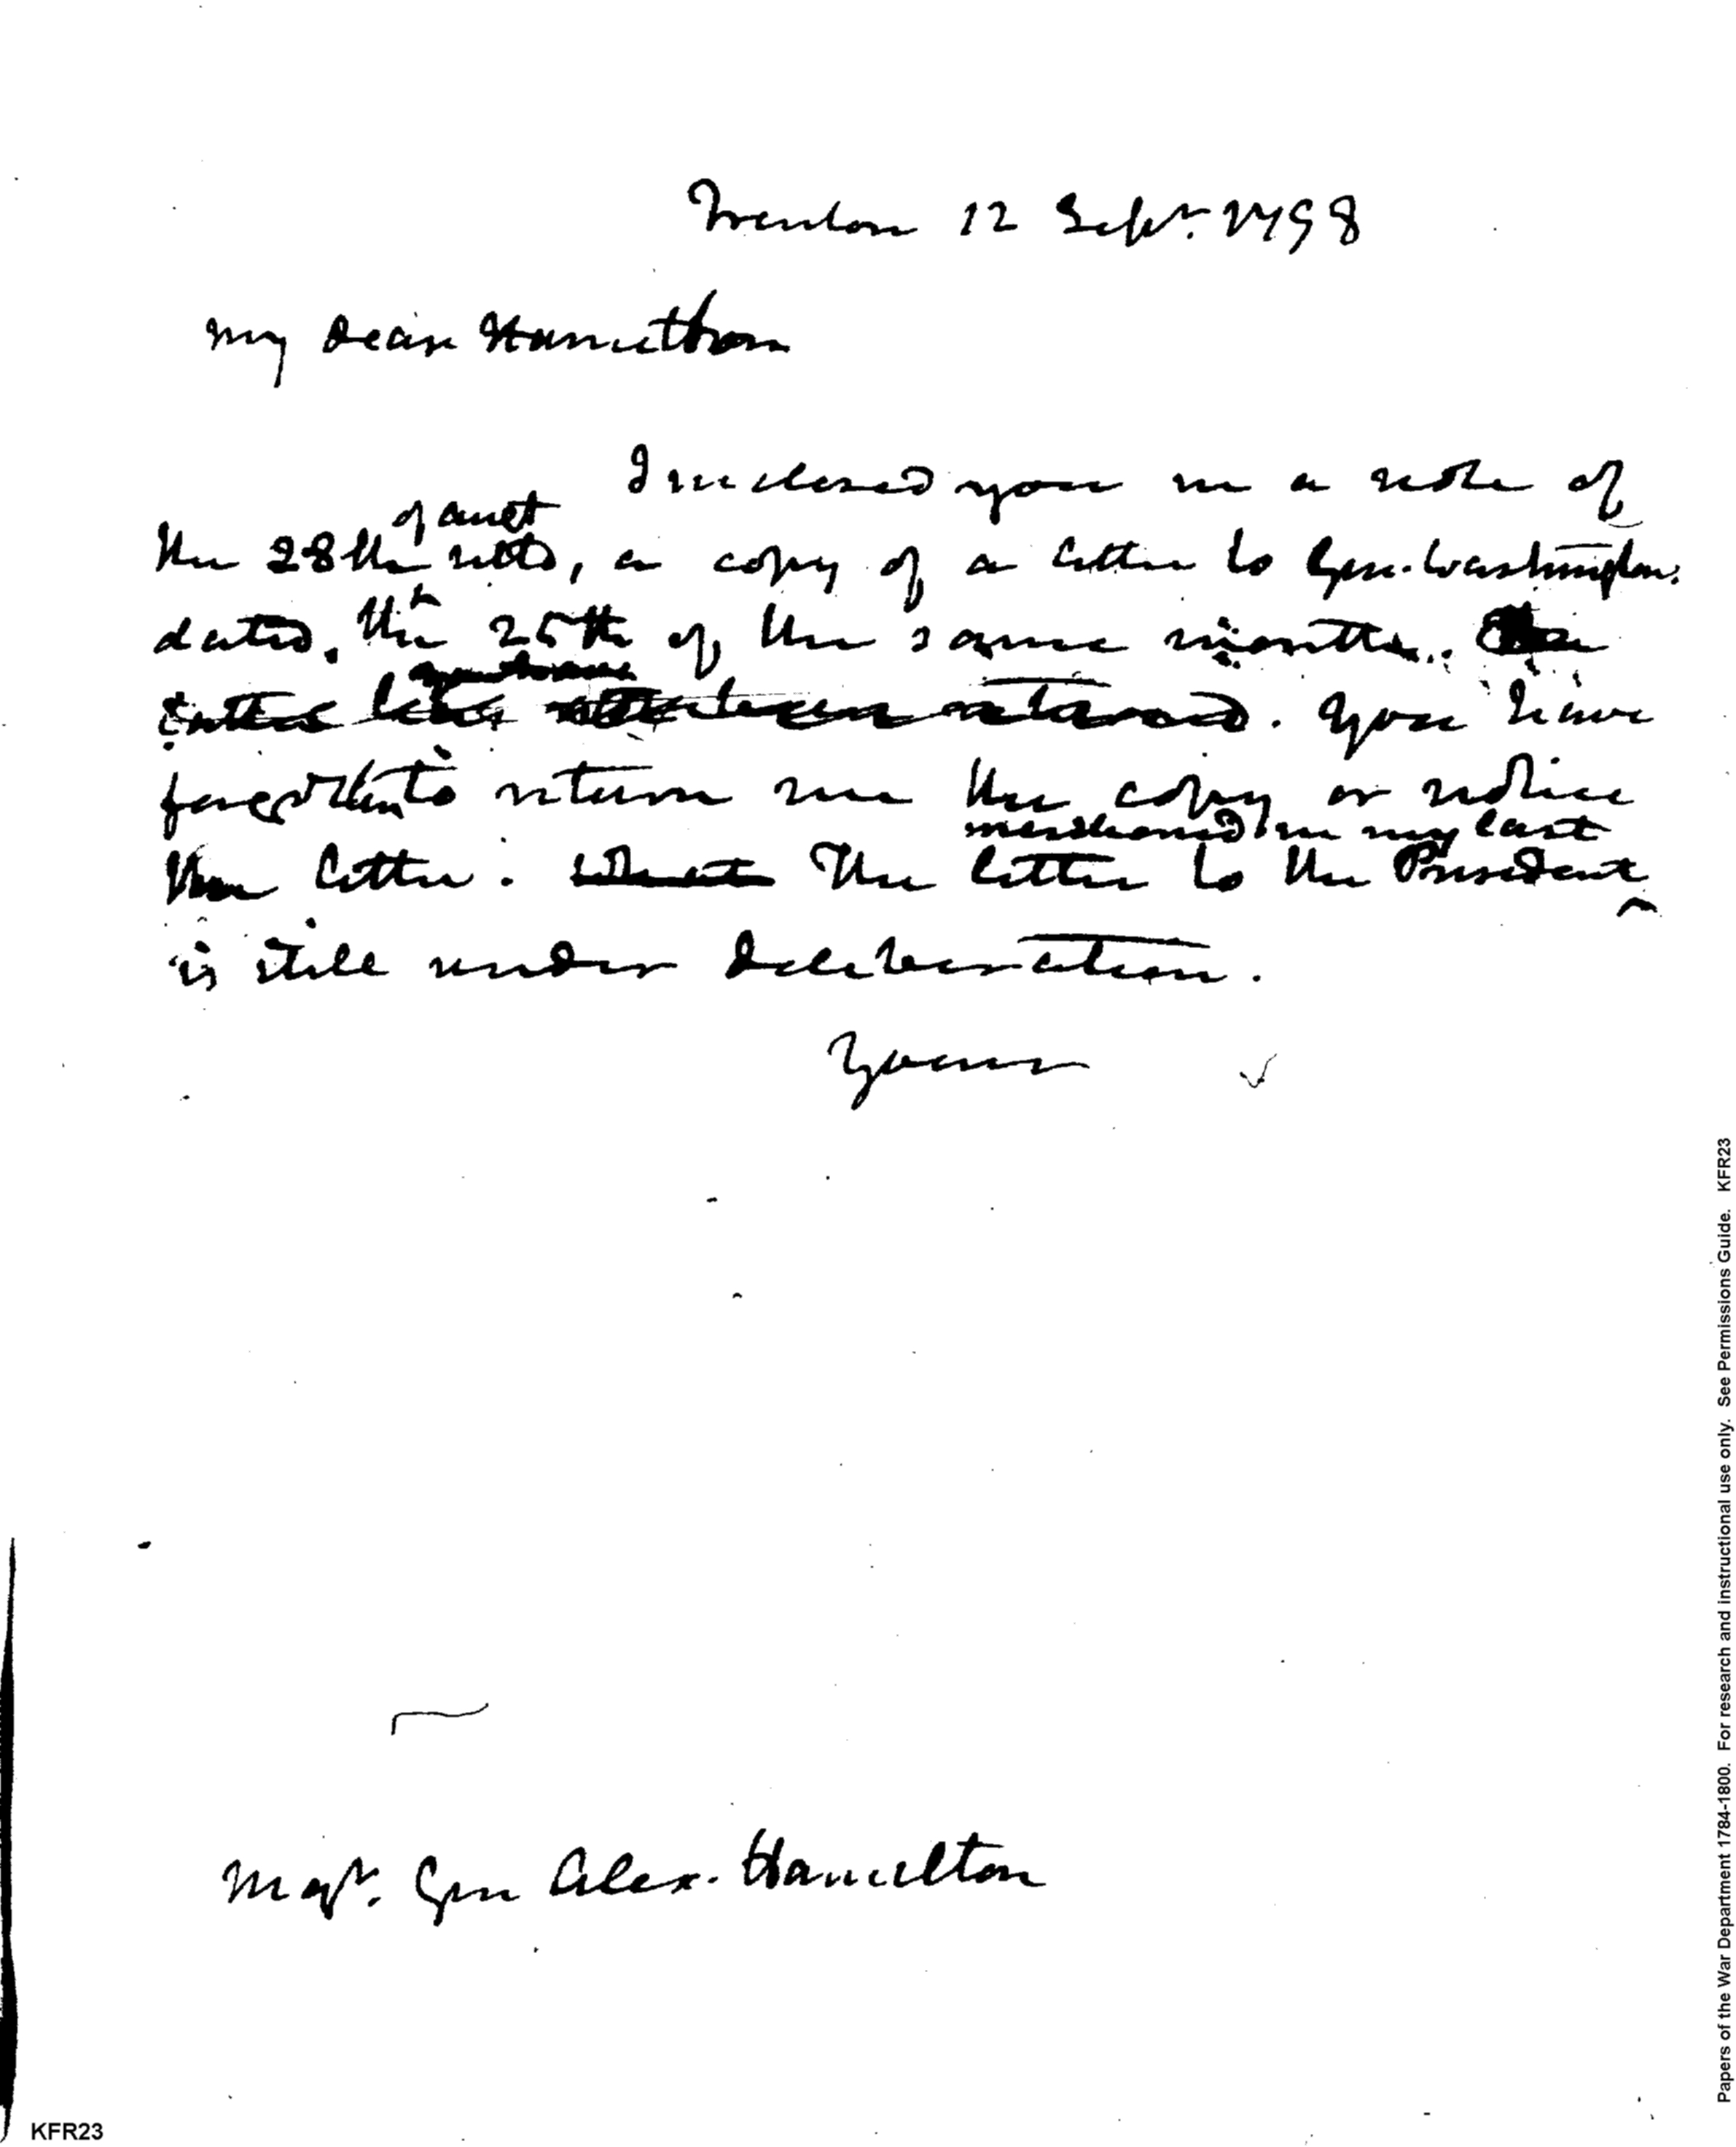 Trenton 12 Sepr. 1798
My Dear Hamilton
I inclosed you in a note of
of Augt
the 28th ulto, a copy of a letter to Gen. Washington.
dated, the 25th of the same month.
been returned. You have
forgotten to return me the copy or notice
mentioned in my last
the letter. The letter to the President
is still under deliberation.
Yours
Majr. Gen Alex. Hamilton
KFR23
Papers of the War Department 1784-1800. For research and instructional use only. See Permissions Guide. KFR23